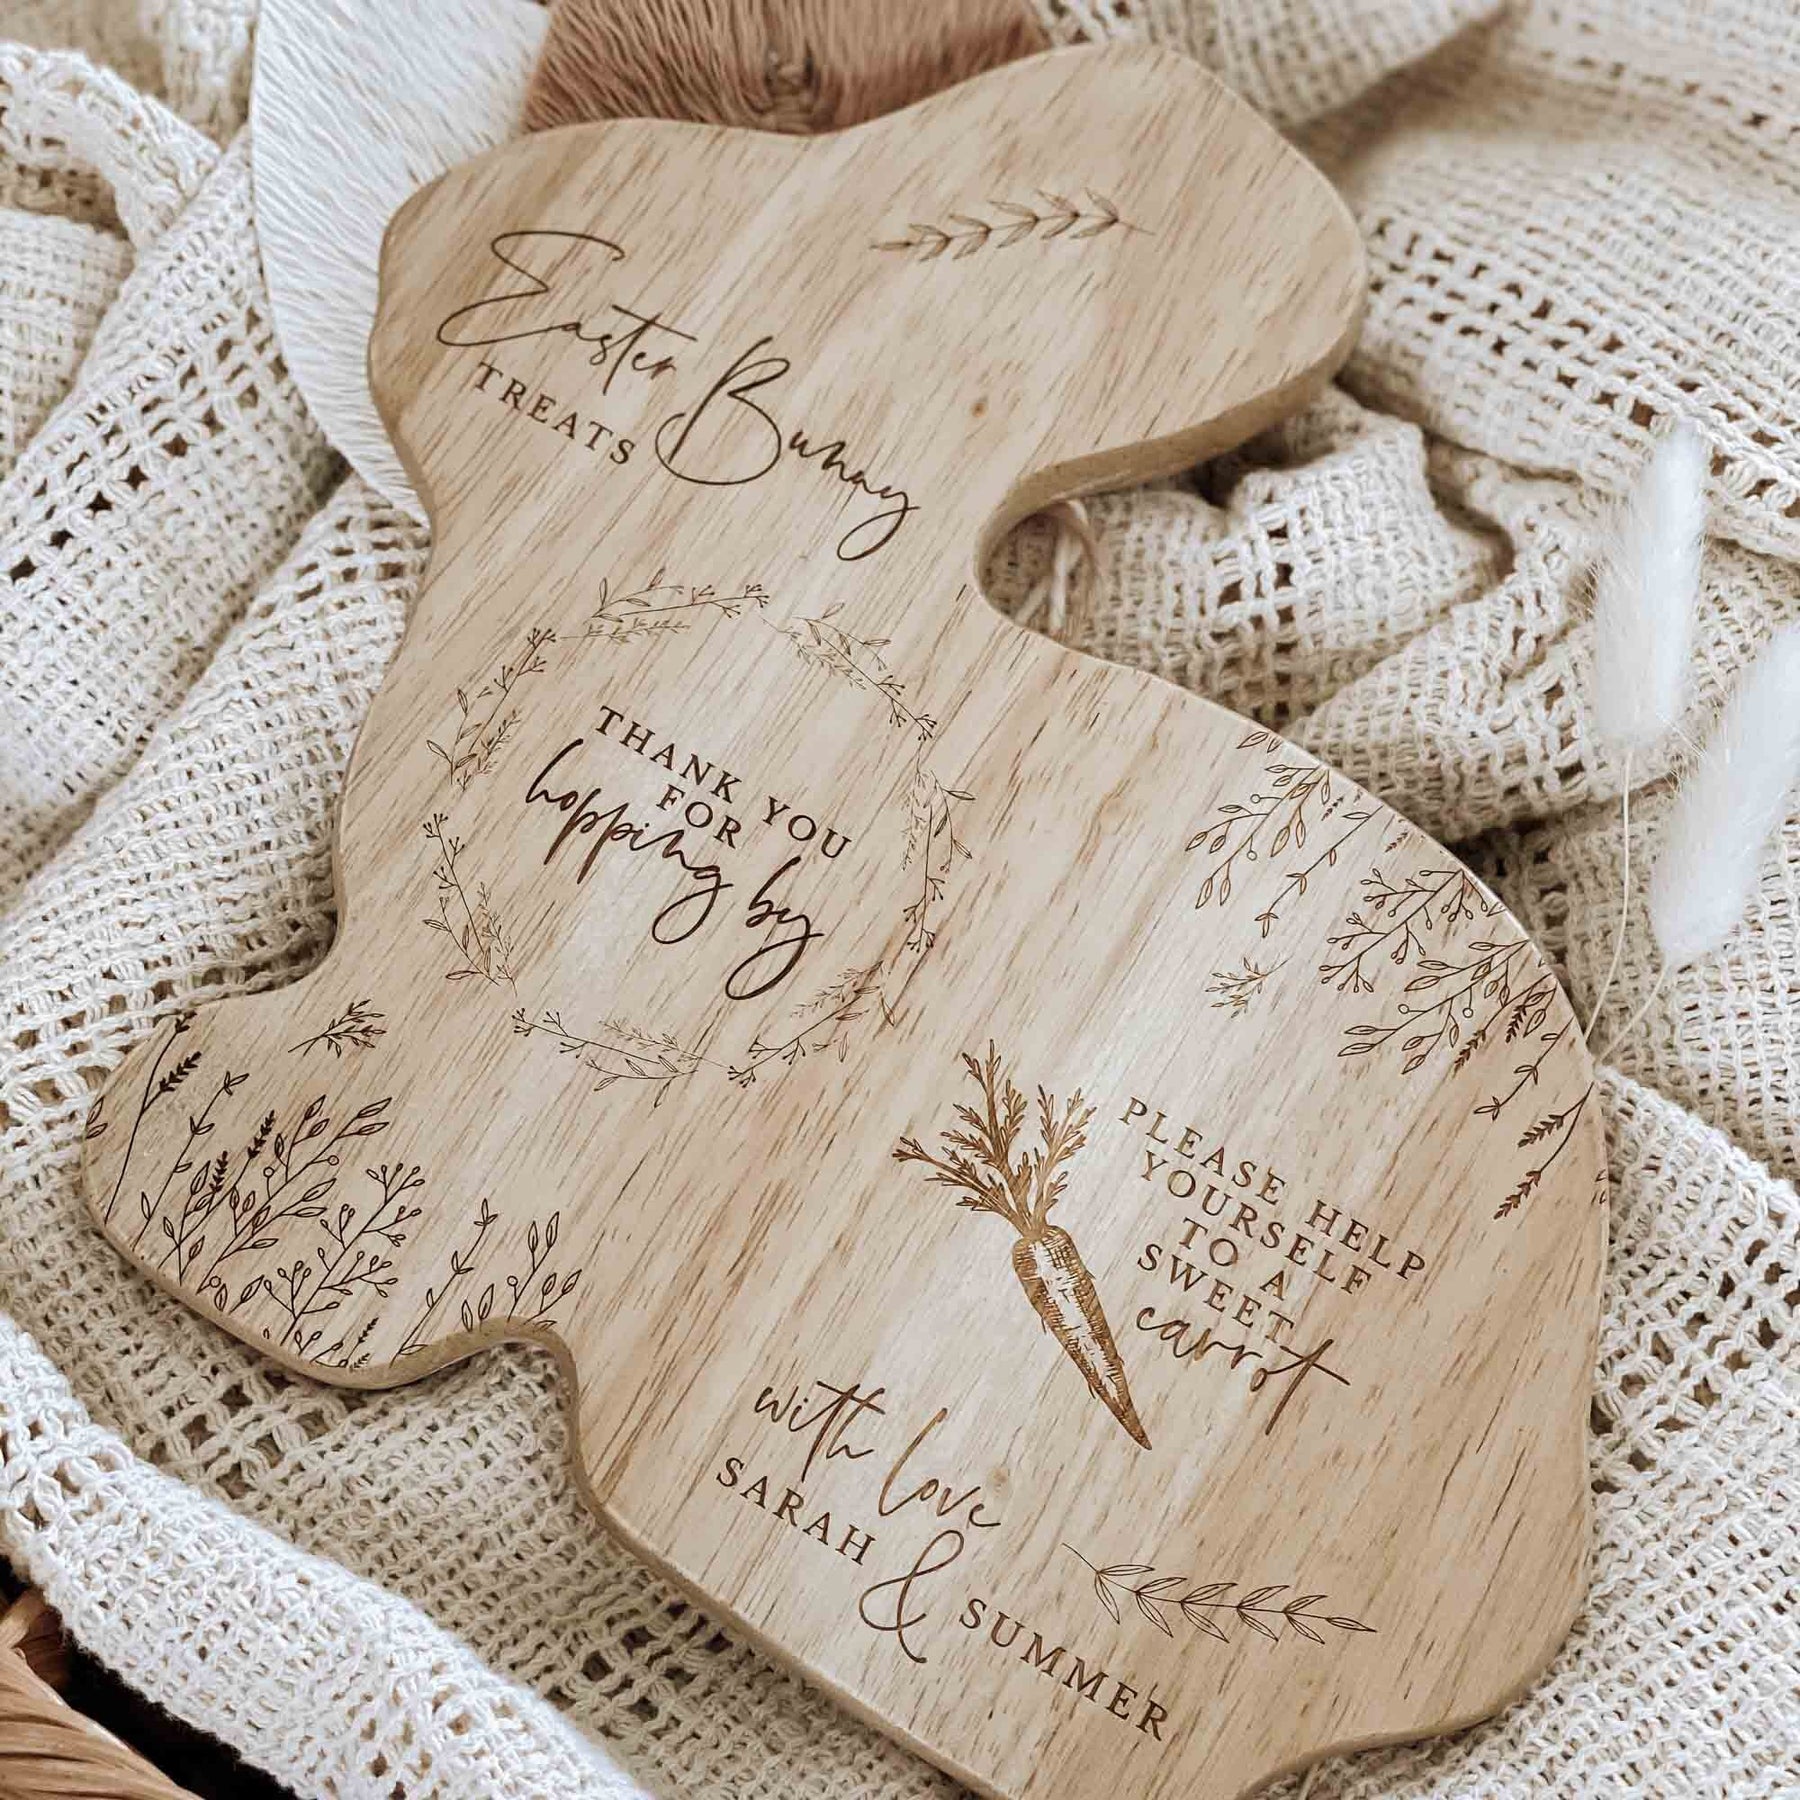 Easter Bunny
TREATS
THANK YOU
FOR
hopping by
PLEASE HELP
YOURSELF
TO A
SWEET
carrot
with love
SARAH & SUMMER